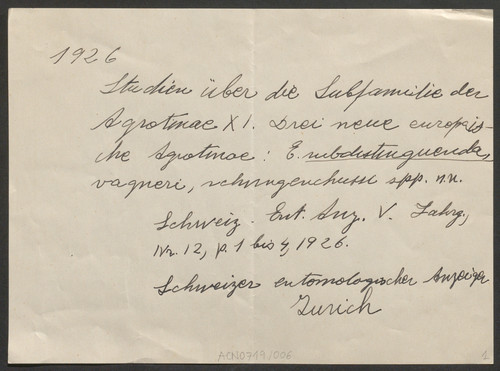 1926
Studien über die Subfamilie der
Agrotinae XI. Drei neue europäis-
che Agrotinae: E. subdistinguenda,
vagneri, schwingenchussi spp. n.n.
Schweiz. Ent. Anz. V. Jahrg.,
Nr. 12, p. 1 bis 4, 1926.
Schweizer entomologischer Anzeiger
Zurich
ACN0719/006
1